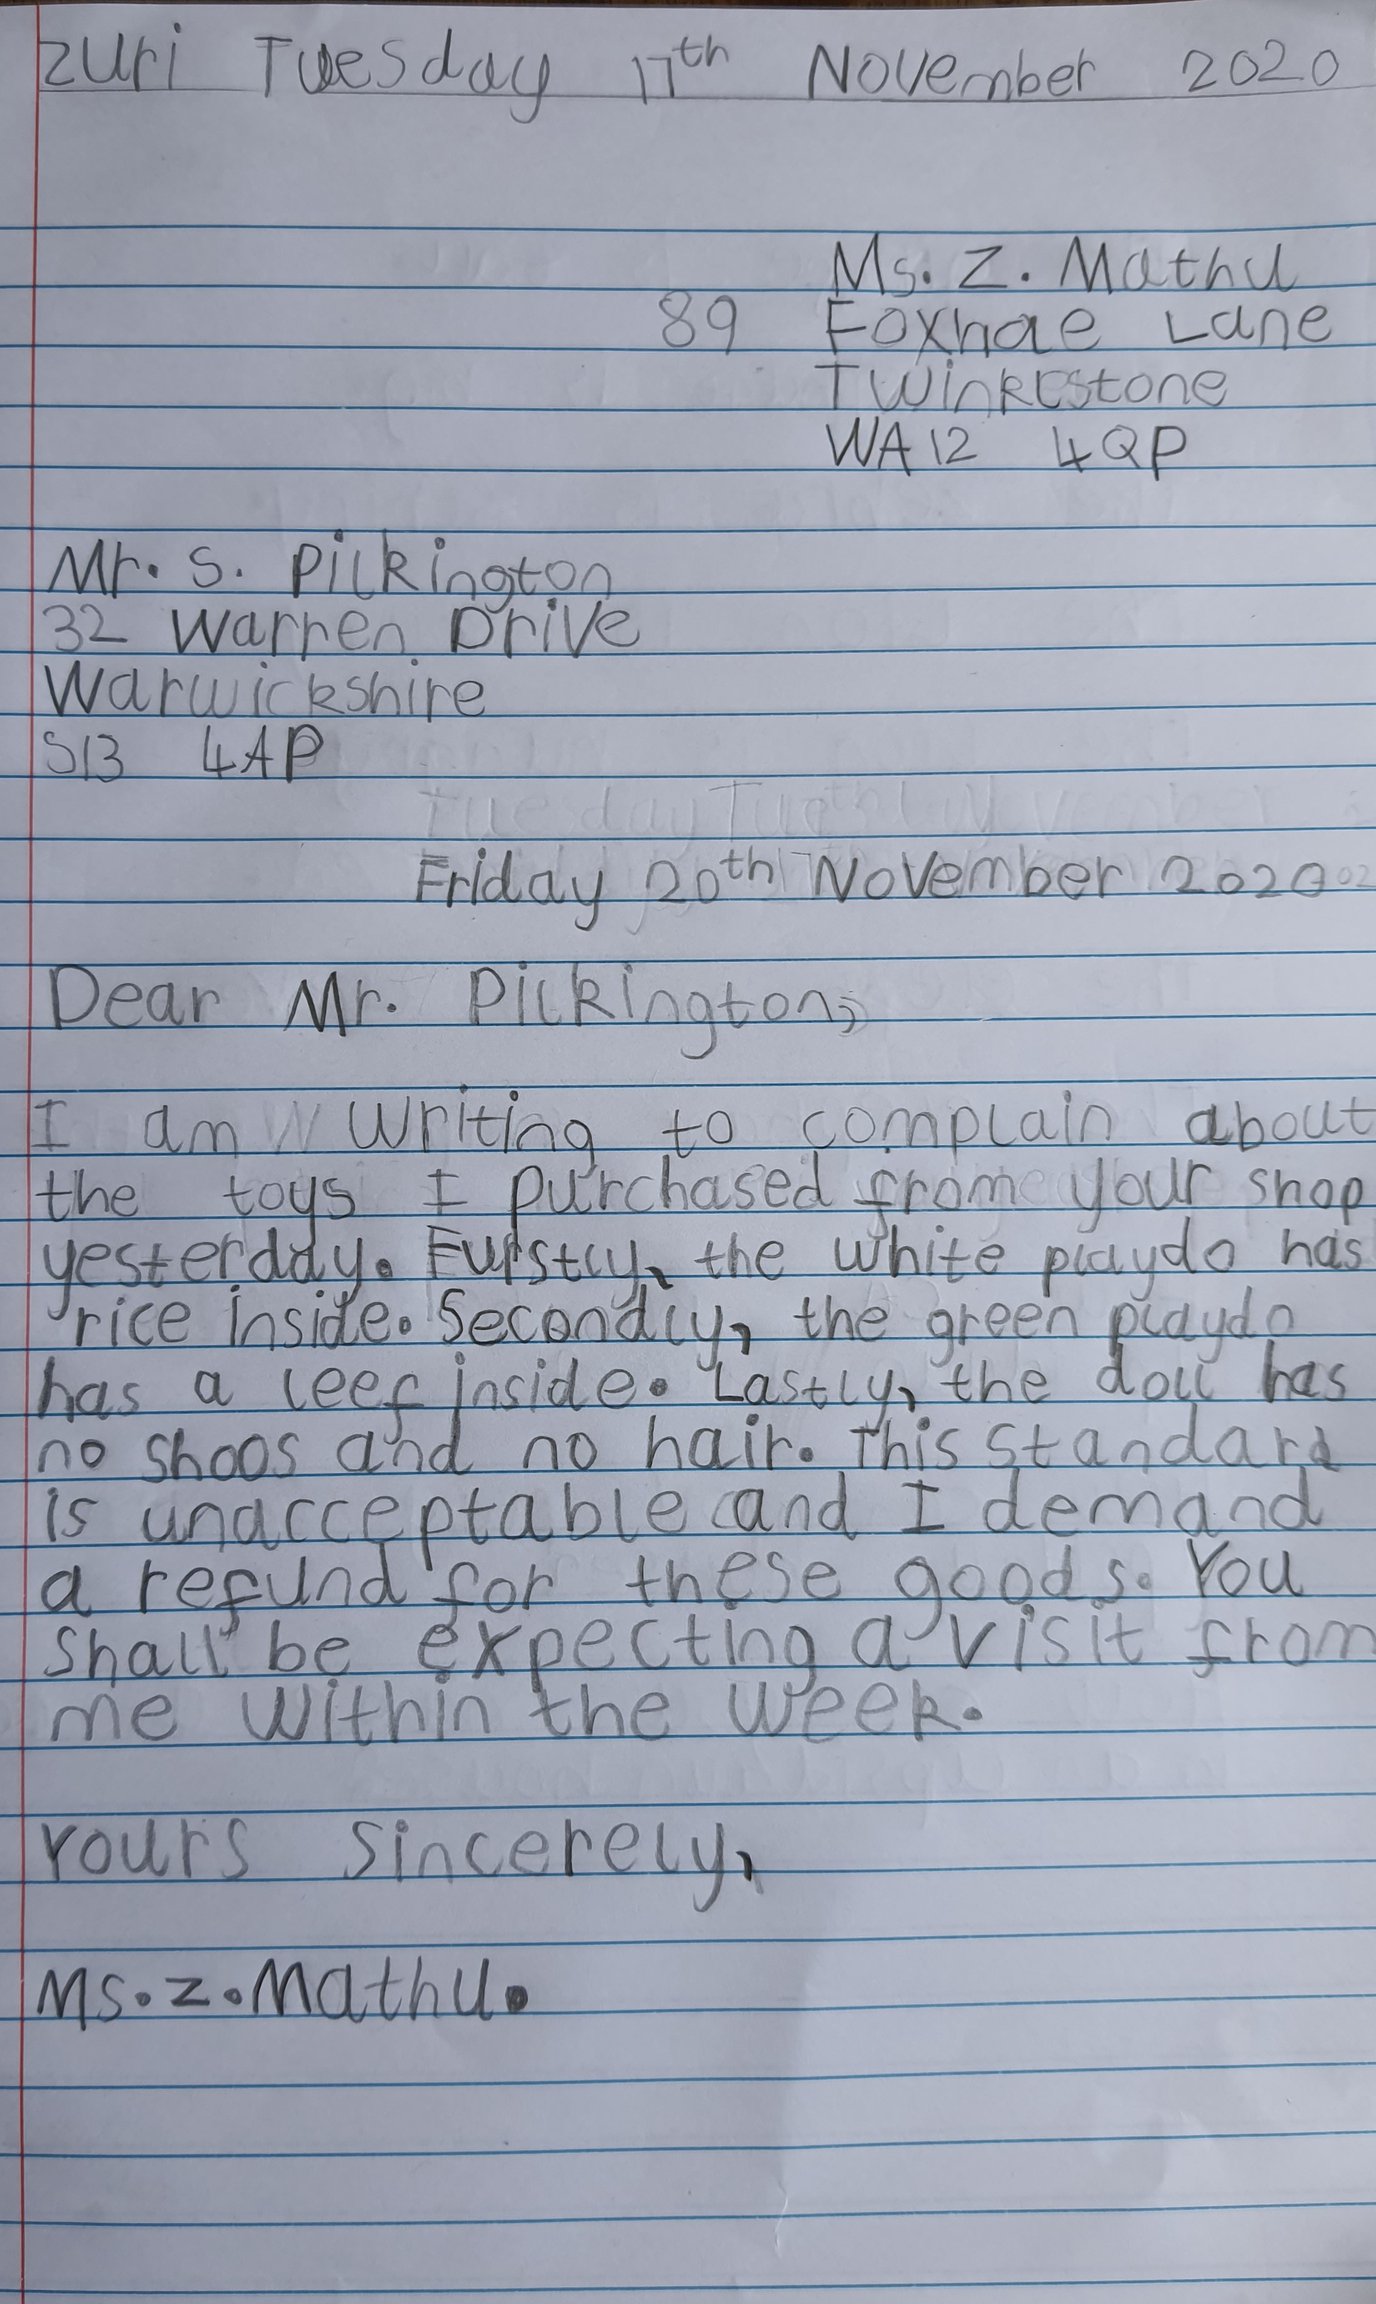 Zuri Tuesday 17th November 2020
Ms. Z. Mathu
89 Foxhae Lane
Twinklstone
WA12 4QP
Mr. S. Pilkington
32 Warren Drive
Warwickshire
S13 4AP
Friday 20th November 2020
Dear Mr. Pilkington,
I am writing to complain about
the toys I purchased from your shop
yesterday. Furstly, the white playdo has
rice inside. Secondly, the green playdo
has a leef inside. Lastly, the doll has
no shoos and no hair. This standard
is unacceptable and I demand
a refund for these goods. You
shall be expecting a visit from
me within the week.
Yours sincerely,
Ms. Z. Mathu.